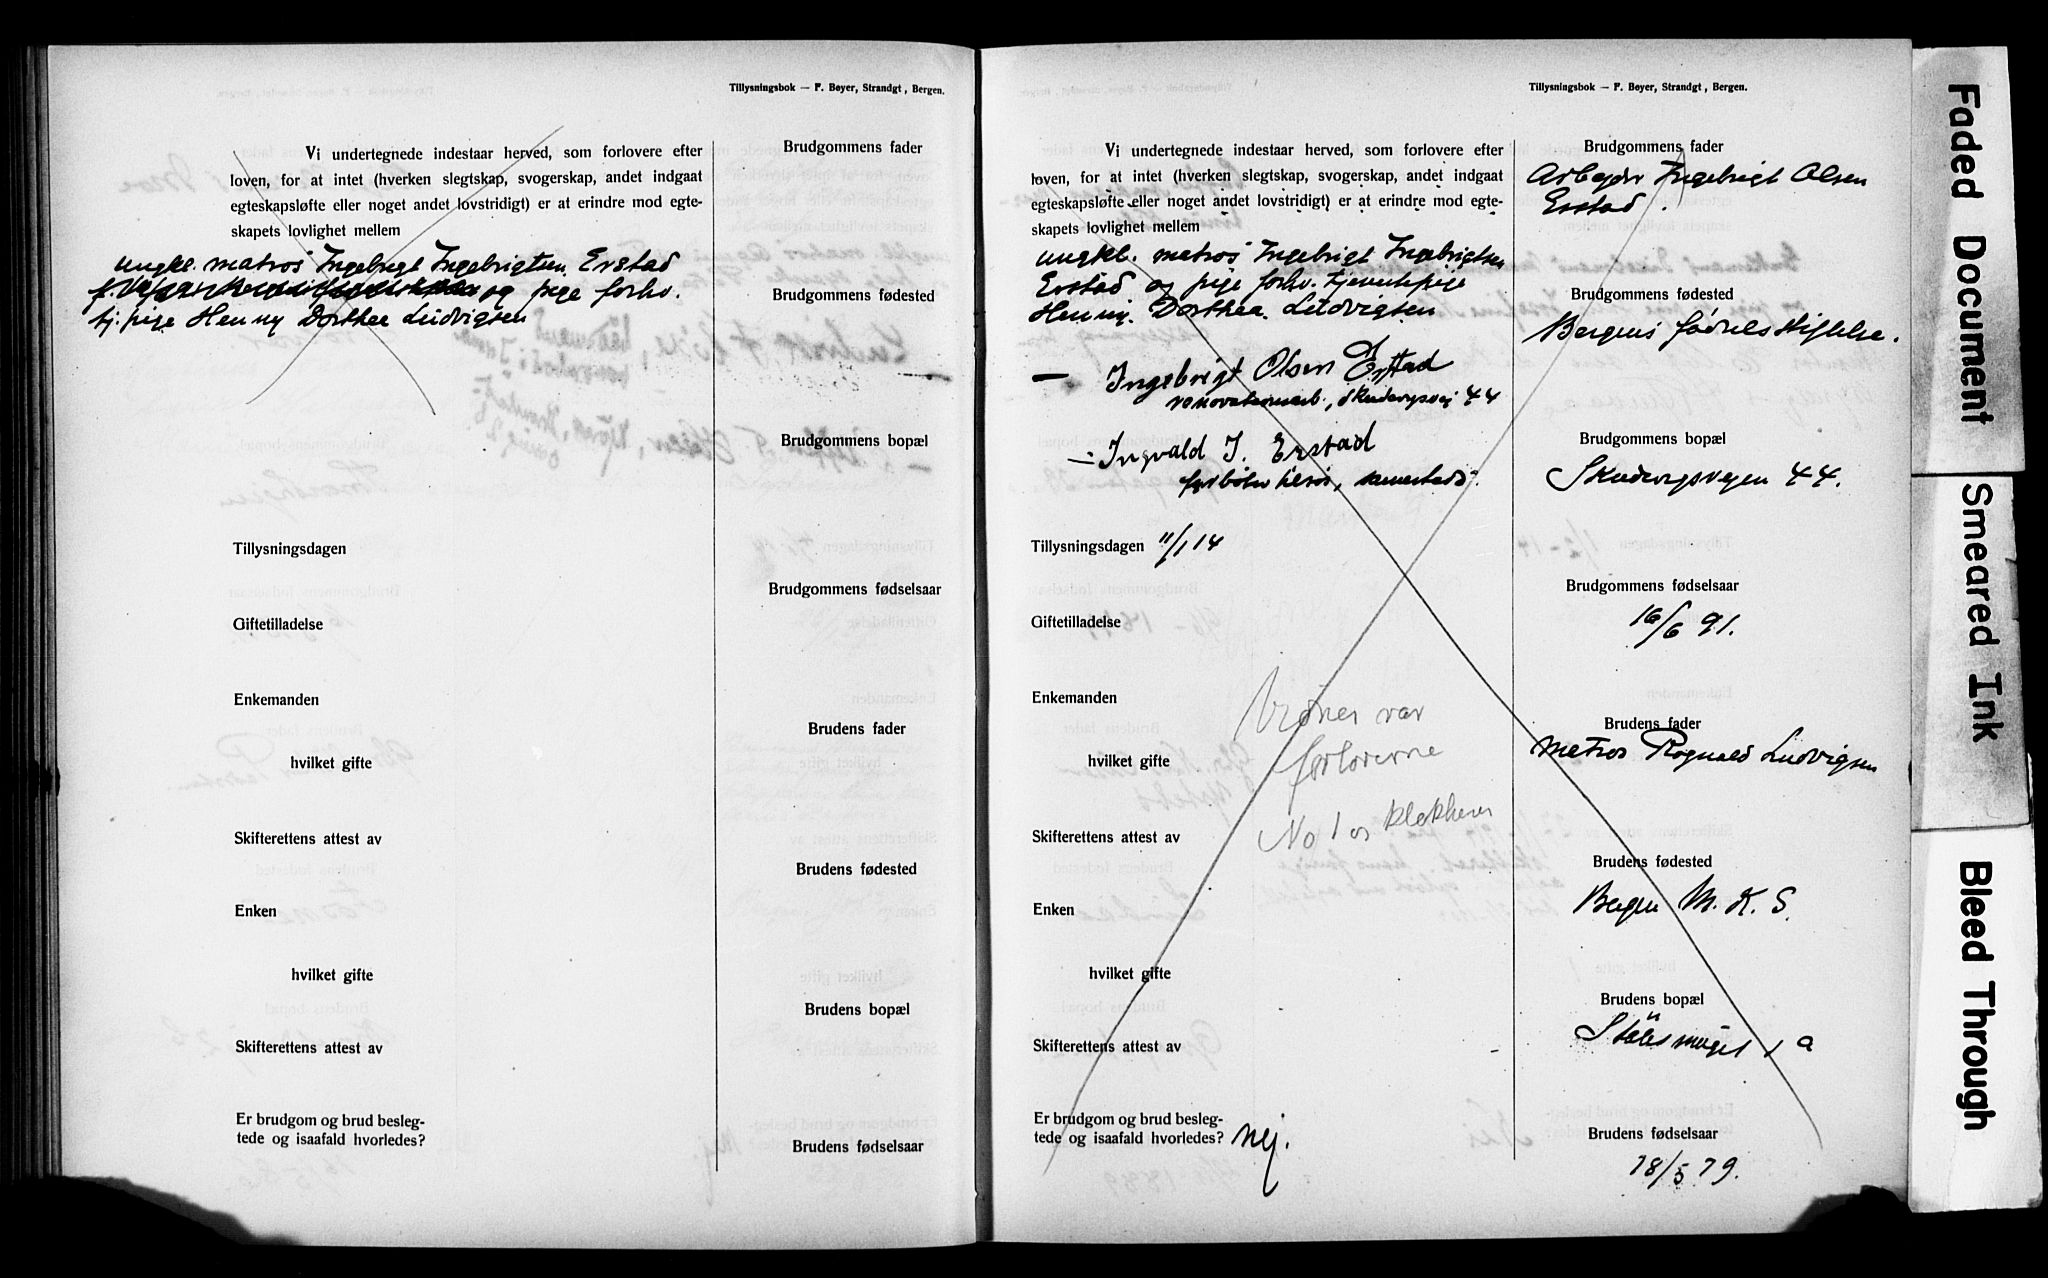 Tillysningsbok — F. Bøyer, Strandgt, Bergen.
Vi undertegnede indestaar herved, som forlovere efter
loven, for at intet (hverken slegtskap, svogerskap, andet indgaat
egteskapsløfte eller noget andet lovstridigt) er at erindre mod egte-
skapets lovlighet mellem
ungkl. matros Ingebrigt Ingebrigtsen Erstad
og pige forhv.
tj. pige Henny Dorthea Ludvigsen
Tillysningsdagen
Giftetilladelse
Enkemanden
hvilket gifte
Skifterettens attest av
Enken
hvilket gifte
Skifterettens attest av
Er brudgom og brud besleg-
tede og isaafald hvorledes?
Brudgommens fader
Brudgommens fødested
Brudgommens bopæl
Brudgommens fødselsaar
Brudens fader
Brudens fødested
Brudens bopæl
Brudens fødselsaar
Tillysningsbok — F. Bøyer, Strandgt, Bergen.
Vi undertegnede indestaar herved, som forlovere efter
loven, for at intet (hverken slegtskap, svogerskap, andet indgaat
egteskapsløfte eller noget andet lovstridigt) er at erindre mod egte-
skapets lovlighet mellem
ungkl. matros Ingebrigt Ingebrigtsen
Erstad og pige forhv. tjenestepige
Henny Dorthea Ludvigsen
— Ingebrigt Olsen Erstad
renovationsarb., Skudevigsvei 44
— Ingvald I. Erstad
samesteds.
Tillysningsdagen 11/1 14
Giftetilladelse
Enkemanden
hvilket gifte
var
forloverne
Skifterettens attest av
No 1 og klokkeren
Enken
hvilket gifte
Skifterettens attest av
Er brudgom og brud besleg-
tede og isaafald hvorledes? nej.
Brudgommens fader
Arbeyder Ingebrigt Olsen
Erstad.
Brudgommens fødested
Bergens fødselsstiftelse.
Brudgommens bopæl
Skudevigsvejen 44.
Brudgommens fødselsaar
16/6 91.
Brudens fader
matros Rognald Ludvigsen
Brudens fødested
Bergen M. K. S.
Brudens bopæl
Stølesmuget 1 a
Brudens fødselsaar
18/5 79.
Faded Document
Smeared Ink
Bleed Through